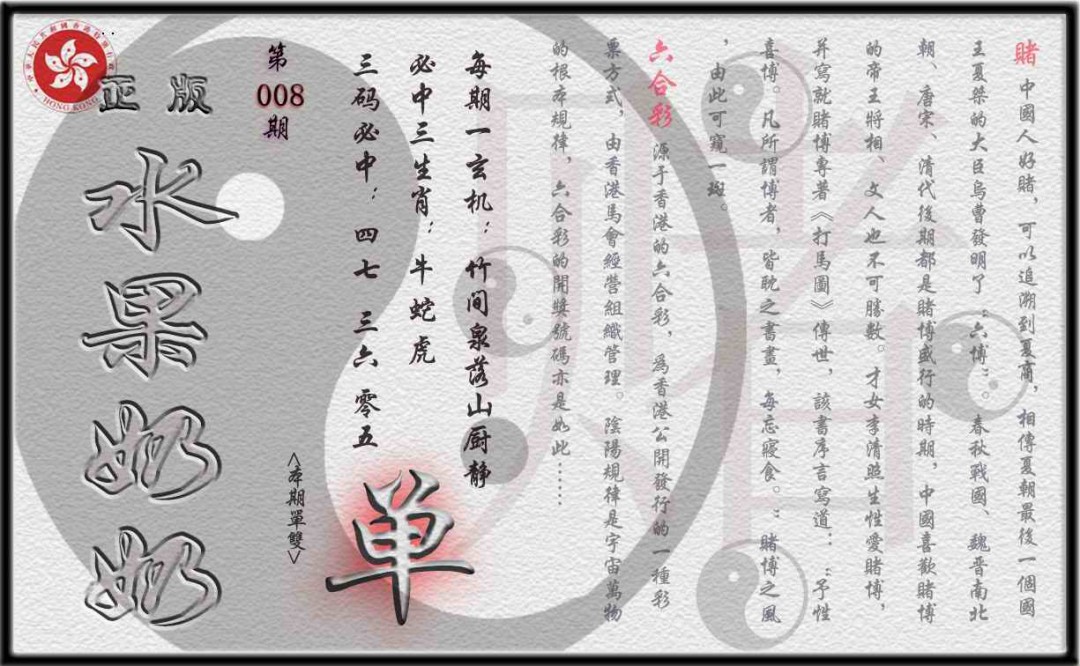 賭 中國人好賭，可以追溯到夏商，相傳夏朝最後一個國
王夏桀的大臣烏曹發明了〝六博〞。春秋戰國、魏晋南北
朝、唐宋、清代後期都是賭博盛行的時期，中國喜歡賭博
的帝王將相、文人也不可勝數。才女李清照生性愛賭博，
并寫就賭博專著《打馬圖》傳世，該書序言寫道：〝予性
喜博。凡所謂博者，皆耽之書畫，每忘寢食。〞賭博之風
，由此可窺一斑。
六合彩 源于香港的六合彩，爲香港公開發行的一種彩
票方式，由香港馬會經營組織管理。陰陽規律是宇宙萬物
的根本規律，六合彩的開獎號碼亦是如此……
每期一玄机：竹间泉落山厨静
必中三生肖：牛蛇虎
三码必中：四七 三六 零五
单
<本期單雙>
第
008
期
正版
水果奶奶
HONG KONG
賭